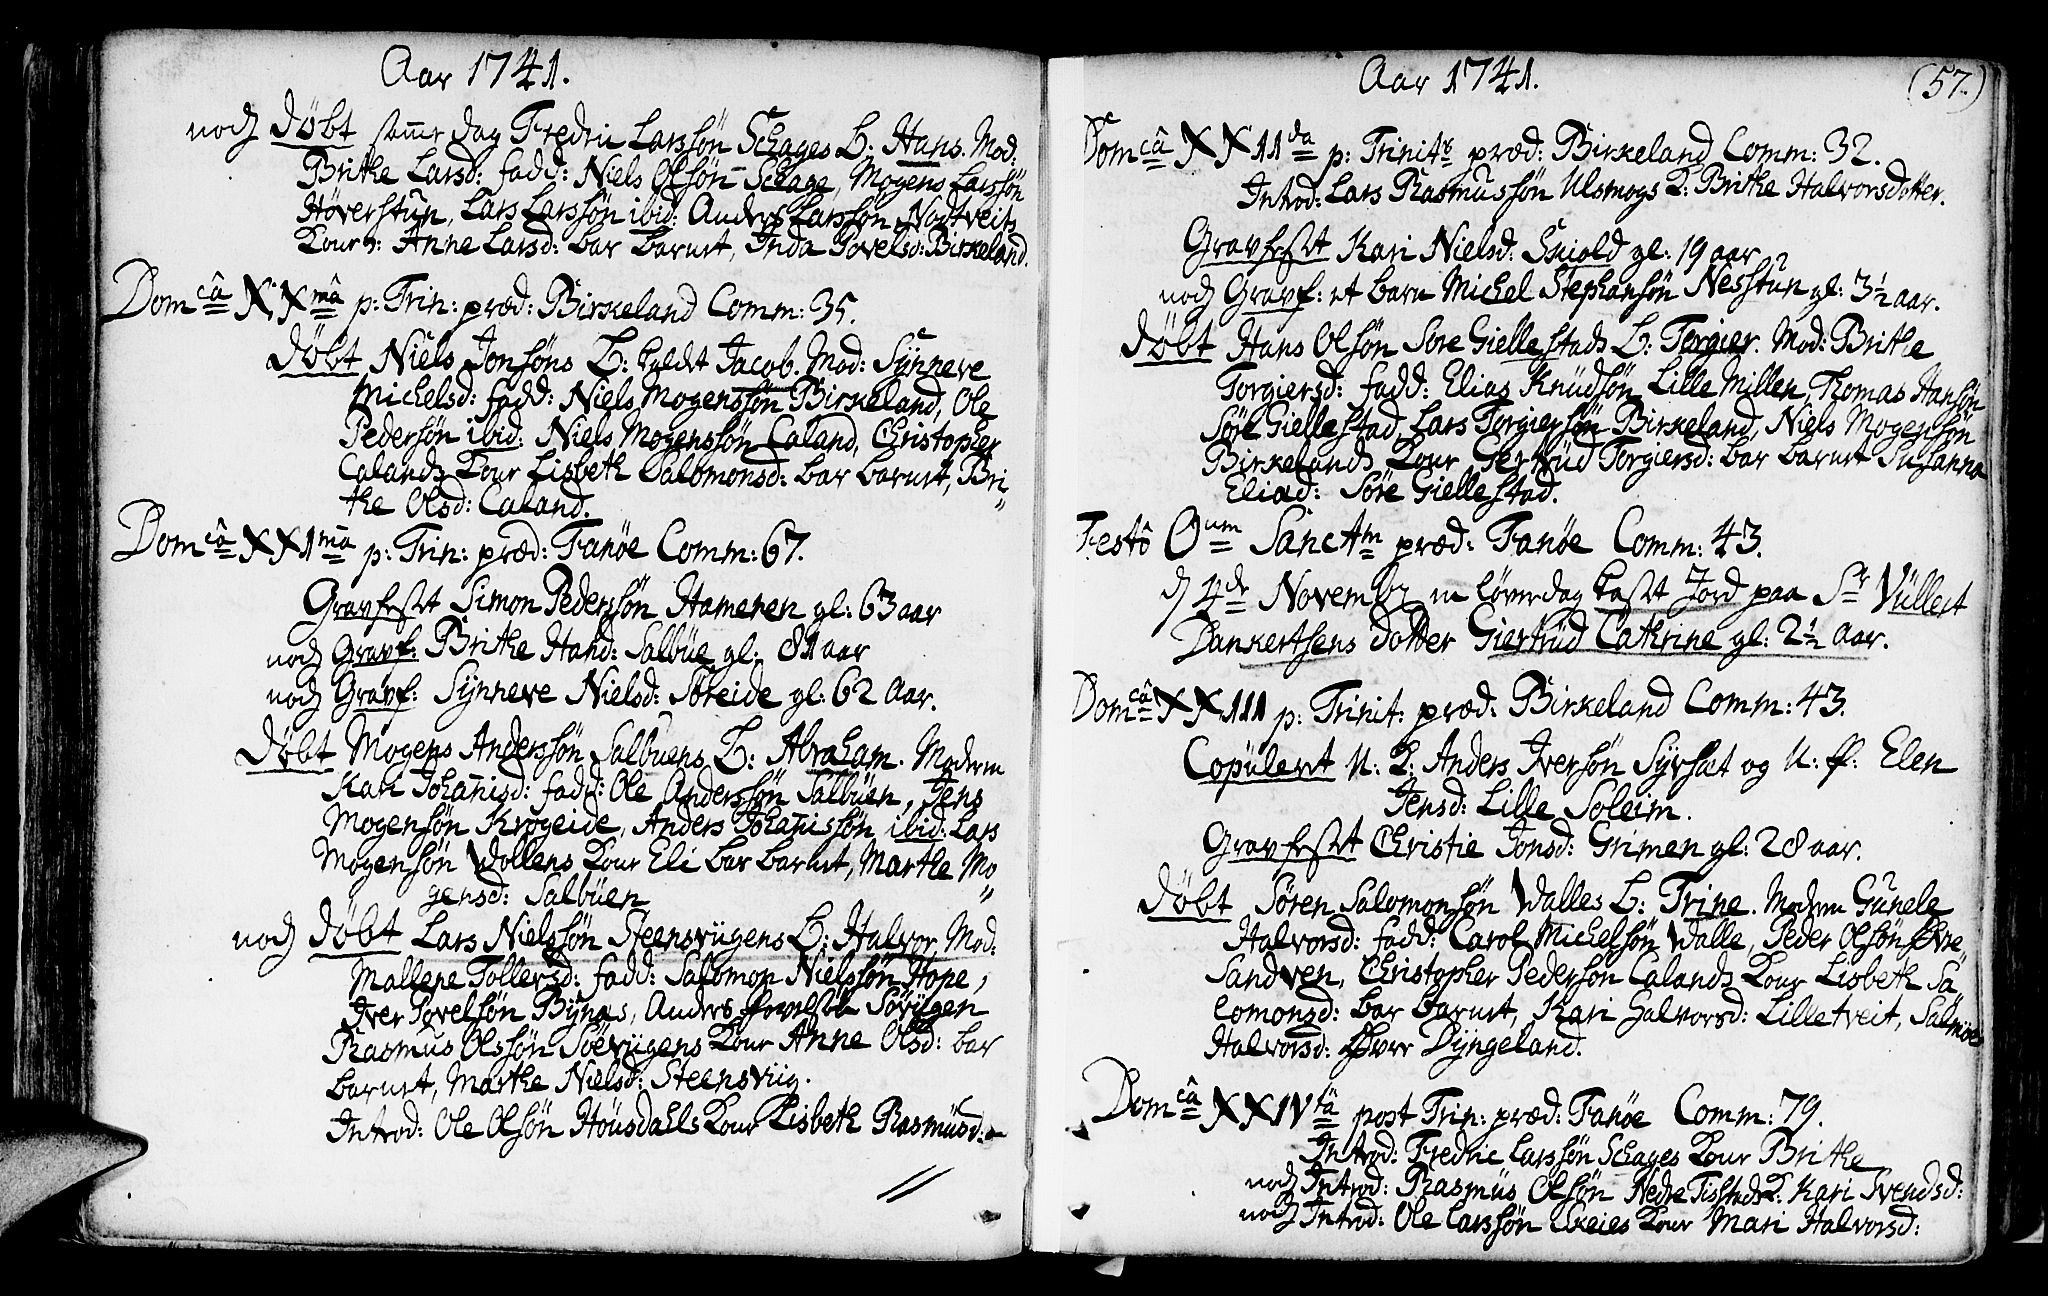 Aar 1741.
nock Døbt samme dag Fredric Larssøn Schages B: Hans. Mod:
Brithe Larsd: fadd: Niels Olsøn Schage, Mogens Larssøn
Høverstün, Lars Larssøn ibid: Anders Larssøn Nodtveits
Kone: Anne Larsd: bar barnet, Inda Povelsd: Birkeland.
Domcâ XXmâ p: Trin: præd: Birkeland Comm: 35.
Døbt Niels Jonsøns B: kaldt Jacob. Mod: Sÿnneve
Michelsd: fadd: Niels Mogenssøn Birkeland, Ole
Pedersøn ibid: Niels Mogenssøn Caland, Christopher
Calands Kone Lisbeth Salomonsd: bar barnet, Bri-
the Olsd: Caland.
Domcâ XXImâ p: Trin: præd: Fanøe Comm: 67.
Gravfestet Simon Pederssøn Hameren gl: 63 aar
nock Gravf: Brithe Hansd: Salbüe gl: 81 aar
nock Gravf: Sÿnneve Nielsd: Søreide gl: 62 Aar.
Døbt Mogens Anderssøn Salbuens B: Abraham. Moderen
Kari Johanisd: fadd: Ole Anderssøn Salbüen, Jens
Mogensøn Krogeide, Anders Johanissøn ibid: Lars
Mogensøn Wollens Kone Eli bar barnet, Marthe Mo-
gensd: Salbüen
nock Døbt Lars Nielssøn Steensvügens B: Halvor. Mod:
Mallene Tollersd: fadd: Salomon Nielssøn Hope,
Iver Povelsøn Bÿnæs, Anders Povelsøn Sørügen
Rasmus Olssøn Søevügens Kone Anne Olsd: bar
barnet, Marthe Nielsd: Steensviig.
Introd: Ole Olsøn Houssdahls Kone Lisbeth Rasmüsd:
Aar 1741. (57.)
Domcâ XXIIda p: Trinits præd: Birkeland Comm: 32.
Introd: Lars Rasmussøn Ulsmogs K: Brithe Halvorsdotter.
Gravfestet Kari Nielsd: Skiold gl: 19 aar
nock Gravf: et barn Michel Stephansøn Nesstün gl: 3½ aar.
Døbt Hans Olsøn Søre Giellestads B: Torgier. Mod: Brithe
Torgiersd: fadd: Elias Knüdsøn Lille Millen, Thomas Hansøn
Søre Giellestad, Lars Torgiersøn Birkeland, Niels Mogensøn
Birkelands Kone Gertrüd Torgiersd: bar barnet Susanna
Eliæd: Søre Giellestad.
Festô Oum Sanctm præd: Fanøe Comm: 43.
d 4de Novembr en Løverdag kastet Jord paa Sr Vüllert
Dankertsens dotter Giertrüd Cathrine gl: 2½ Aar.
Domcâ XXIII p: Trinit: præd: Birkeland Comm: 43.
Copüleret U: K: Anders Iversøn Sÿvsæt og U: P: Elen
Jensd: Lille Soleim.
Gravfestet Christie Jonsd: Grimen gl: 28 aar.
Døbt Søren Salomonsøn Walles B: Trine. Moderen Günele
Halvorsd: fadd: Carol Michelsøn Walle, Peder Olsøn Øvre
Sandven, Christopher Pedersøn Calands Kone Lisbeth Sa-
lomonsd: bar barnet, Kari Halvorsd: Lilletveit, Salmine
Halvorsd: Øvre Dÿngeland.
Domcâ XXIVtâ post Trin: præd: Fanøe Comm: 79.
Introd: Fredric Larssøn Schages Kone Brithe
nock Introd: Rasmüs Olsøn Nedre Tisstads K: Kari Svendsd:
nock Introd: Ole Larssøn Skeies Kone Mari Halvorsd: